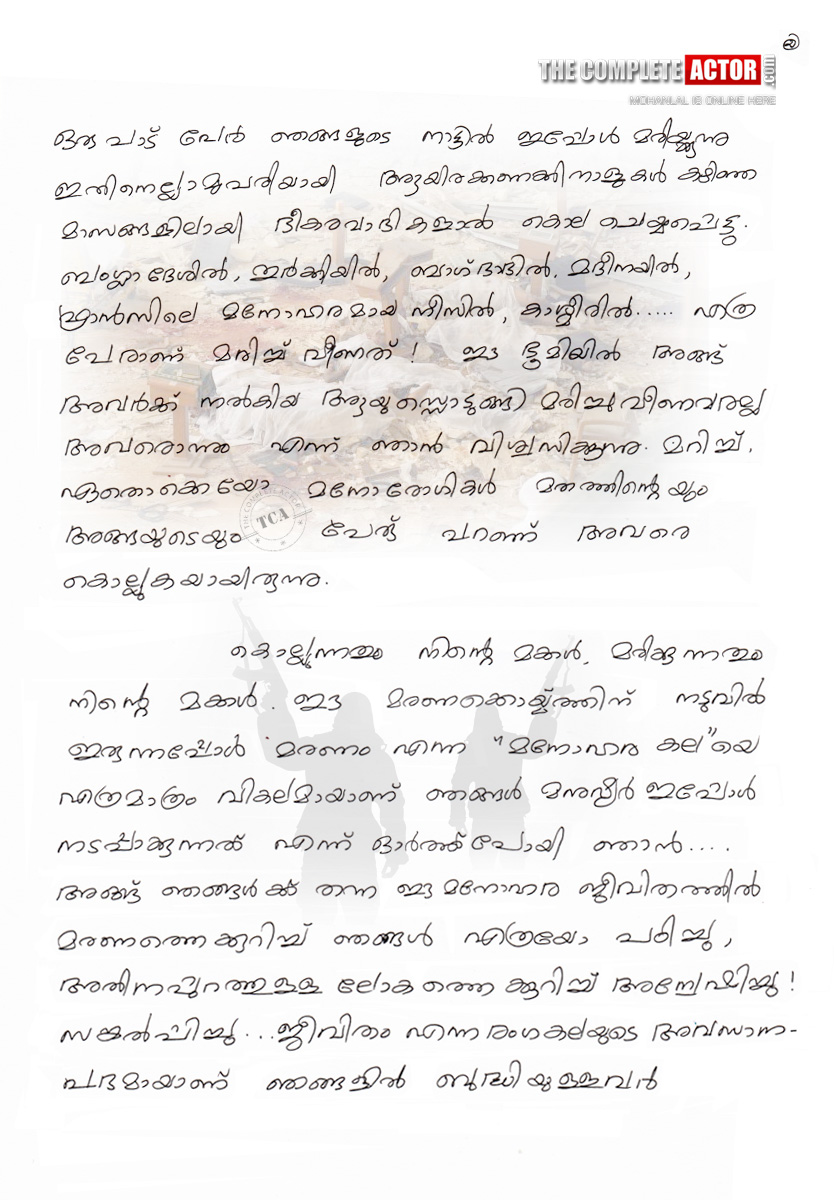 ൨
THE COMPLETE ACTOR .COM
MOHANLAL IS ONLINE HERE
ഒരുപാട് പേർ ഞങ്ങളുടെ നാട്ടിൽ ഇപ്പോൾ മരിയ്ക്കുന്നു
ഇതിനെല്ലാമുപരിയായി ആയിരക്കണക്കിനാളുകൾ കഴിഞ്ഞ
മാസങ്ങളിലായി ഭീകരവാദികളാൽ കൊല ചെയ്യപ്പെട്ടു.
ബംഗ്ലാദേശിൽ, ഇർക്കിയിൽ, ബാഗ്ദാദിൽ, മദീനയിൽ,
ഫ്രാൻസിലെ മനോഹരമായ നീസിൽ, കാശ്മീരിൽ..... എത്ര
പേരാണ് മരിച്ച് വീണത്! ഈ ഭൂമിയിൽ അങ്ങ്
അവർക്ക് നൽകിയ ആയുസ്സൊടുങ്ങി മരിച്ചുവീണവരല്ല
അവരൊന്നും എന്ന് ഞാൻ വിശ്വസിക്കുന്നു. മറിച്ച്,
ഏതൊക്കെയോ മനോരോഗികൾ മതത്തിന്റെയും
അങ്ങയുടെയും പേര് പറഞ്ഞ് അവരെ
കൊല്ലുകയായിരുന്നു.
THE COMPLETE ACTOR TCA
കൊല്ലുന്നതും നിന്റെ മക്കൾ, മരിക്കുന്നതും
നിന്റെ മക്കൾ. ഈ മരണക്കൊയ്ത്തിന് നടുവിൽ
ഇരുന്നപ്പോൾ മരണം എന്ന "മനോഹര കല"യെ
എത്രമാത്രം വികലമായാണ് ഞങ്ങൾ മനുഷ്യർ ഇപ്പോൾ
നടപ്പാക്കുന്നത് എന്ന് ഓർത്ത്പോയി ഞാൻ....
അങ്ങ് ഞങ്ങൾക്ക് തന്ന ഈ മനോഹര ജീവിതത്തിൽ
മരണത്തെക്കുറിച്ച് ഞങ്ങൾ എത്രയോ പഠിച്ചു,
അതിനപ്പുറത്തുള്ള ലോകത്തെക്കുറിച്ച് അന്വേഷിച്ചു!
സങ്കൽപ്പിച്ചു...ജീവിതം എന്ന രംഗകലയുടെ അവസാന-
പദമായാണ് ഞങ്ങളിൽ ബുദ്ധിയുള്ളവർ